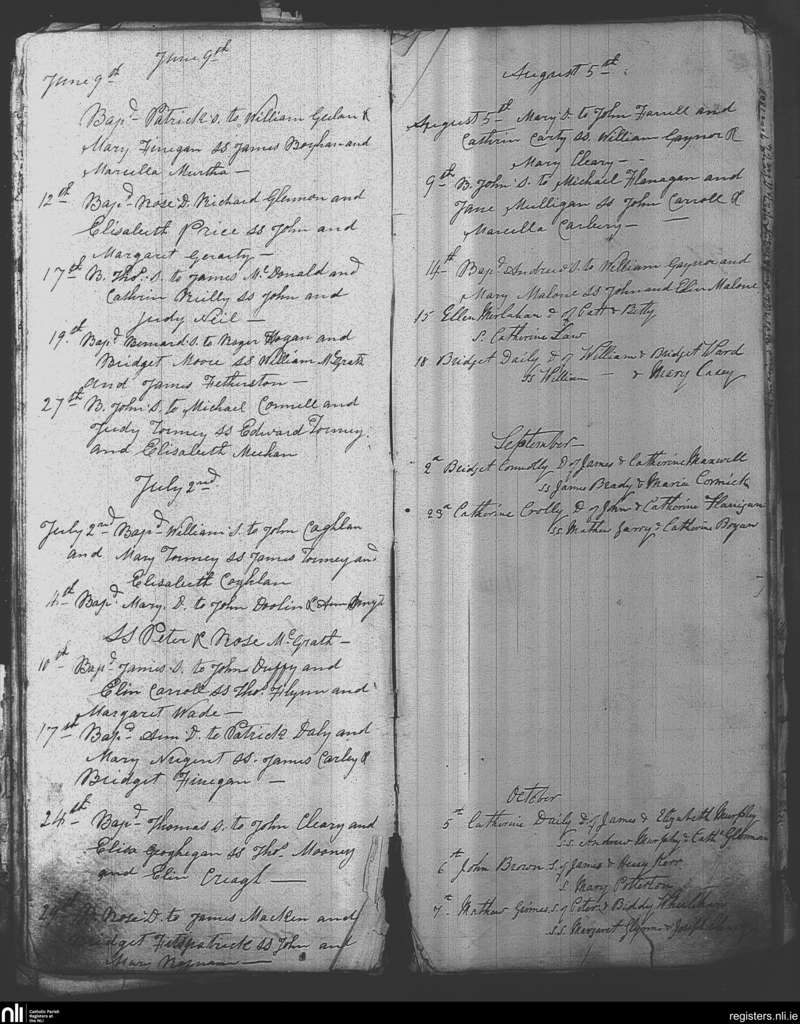 June 9th
June 9th
Bapd Patrick S. to William Geelan &
Mary Finegan SS James Boyhan and
Marcella Murtha —
12th Bapd Rose D. Richard Glennon and
Elisabeth Price SS John and
Margaret Gerarty —
17th B. Thos. S. to James McDonald and
Cathrin Reilly SS John and
Judy Neil —
19th Bapd Bernard S. to Roger Hogan and
Bridget Moore SS William McGrath
and James Fetherston —
27th B. John S. to Michael Connell and
Judy Tormey SS Edward Tormey
and Elisabeth Meehan
July 2nd
July 2nd Bapd William S. to John Coghlan
and Mary Tormey SS James Tormey and
Elisabeth Coghlan
4th Bapd Mary D. to John Doolin & Ann
SS Peter & Rose McGrath —
10th Bapd James S. to John Duffy and
Elin Carroll SS Thos. Flynn and
Margaret Wade —
17th Bapd Ann D. to Patrick Daly and
Mary Nugent SS. James Carley &
Bridget Finegan —
24th Bapd Thomas S. to John Cleary and
Eliza Geoghegan SS Thos. Mooney
and Elin Creagh —
B. Rose D. to James Macken and
Bridget Fitzpatrick SS John and
Mary
August 5th
August 5th Mary D. to John Farrell and
Cathrin Carty SS. William Gaynor &
Mary Cleary —
9th B. John S. to Michael Flanagan and
Jane Mulligan SS John Carroll &
Marcella Carbery —
14th Bapd Andrew S. to William Gaynor and
Mary Malone SS John and Elin Malone
15 Ellen d. of Patt & Betty
S. Catherine Law
18 Bridget Daily d. of William & Bridget Ward
SS William — & Mary Casey
September
2d Bridget Connolly D. of James & Catherine Maxwell
SS James Brady & Maria Cormick
23d Catherine D. of John & Catherine Flanigan
SS. Mathew Garry & Catherine Bryan
October
5th Catherine Daily D. of James & Elizabeth Murphy
SS. Andrew Murphy & Cathe
6th John Brown S. of James & Kerr
S. Mary Potterton
7th Mathew S. of Peter & Biddy
SS. Margaret Glynn & Joseph
nli
Catholic Parish
Registers at
the NLI
registers.nli.ie